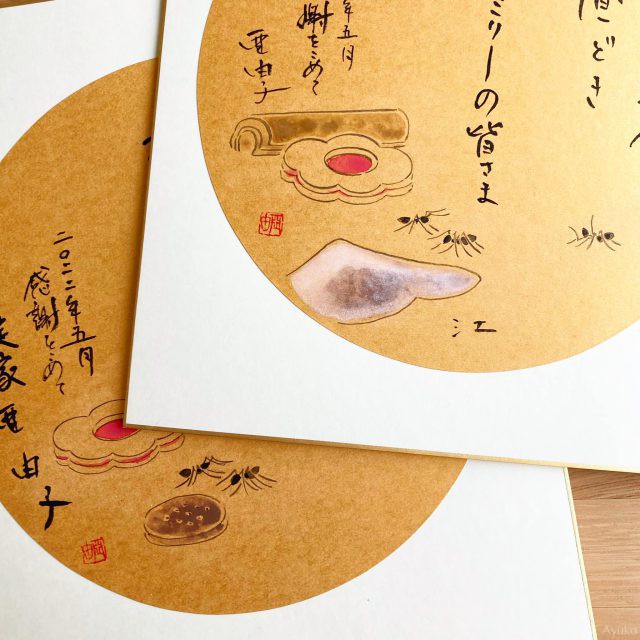 どき
ミリーの皆さま
江
年五月
謝をこめて
亜由子
二〇二二年五月
感謝をこめて
家亜由子
Ayuko